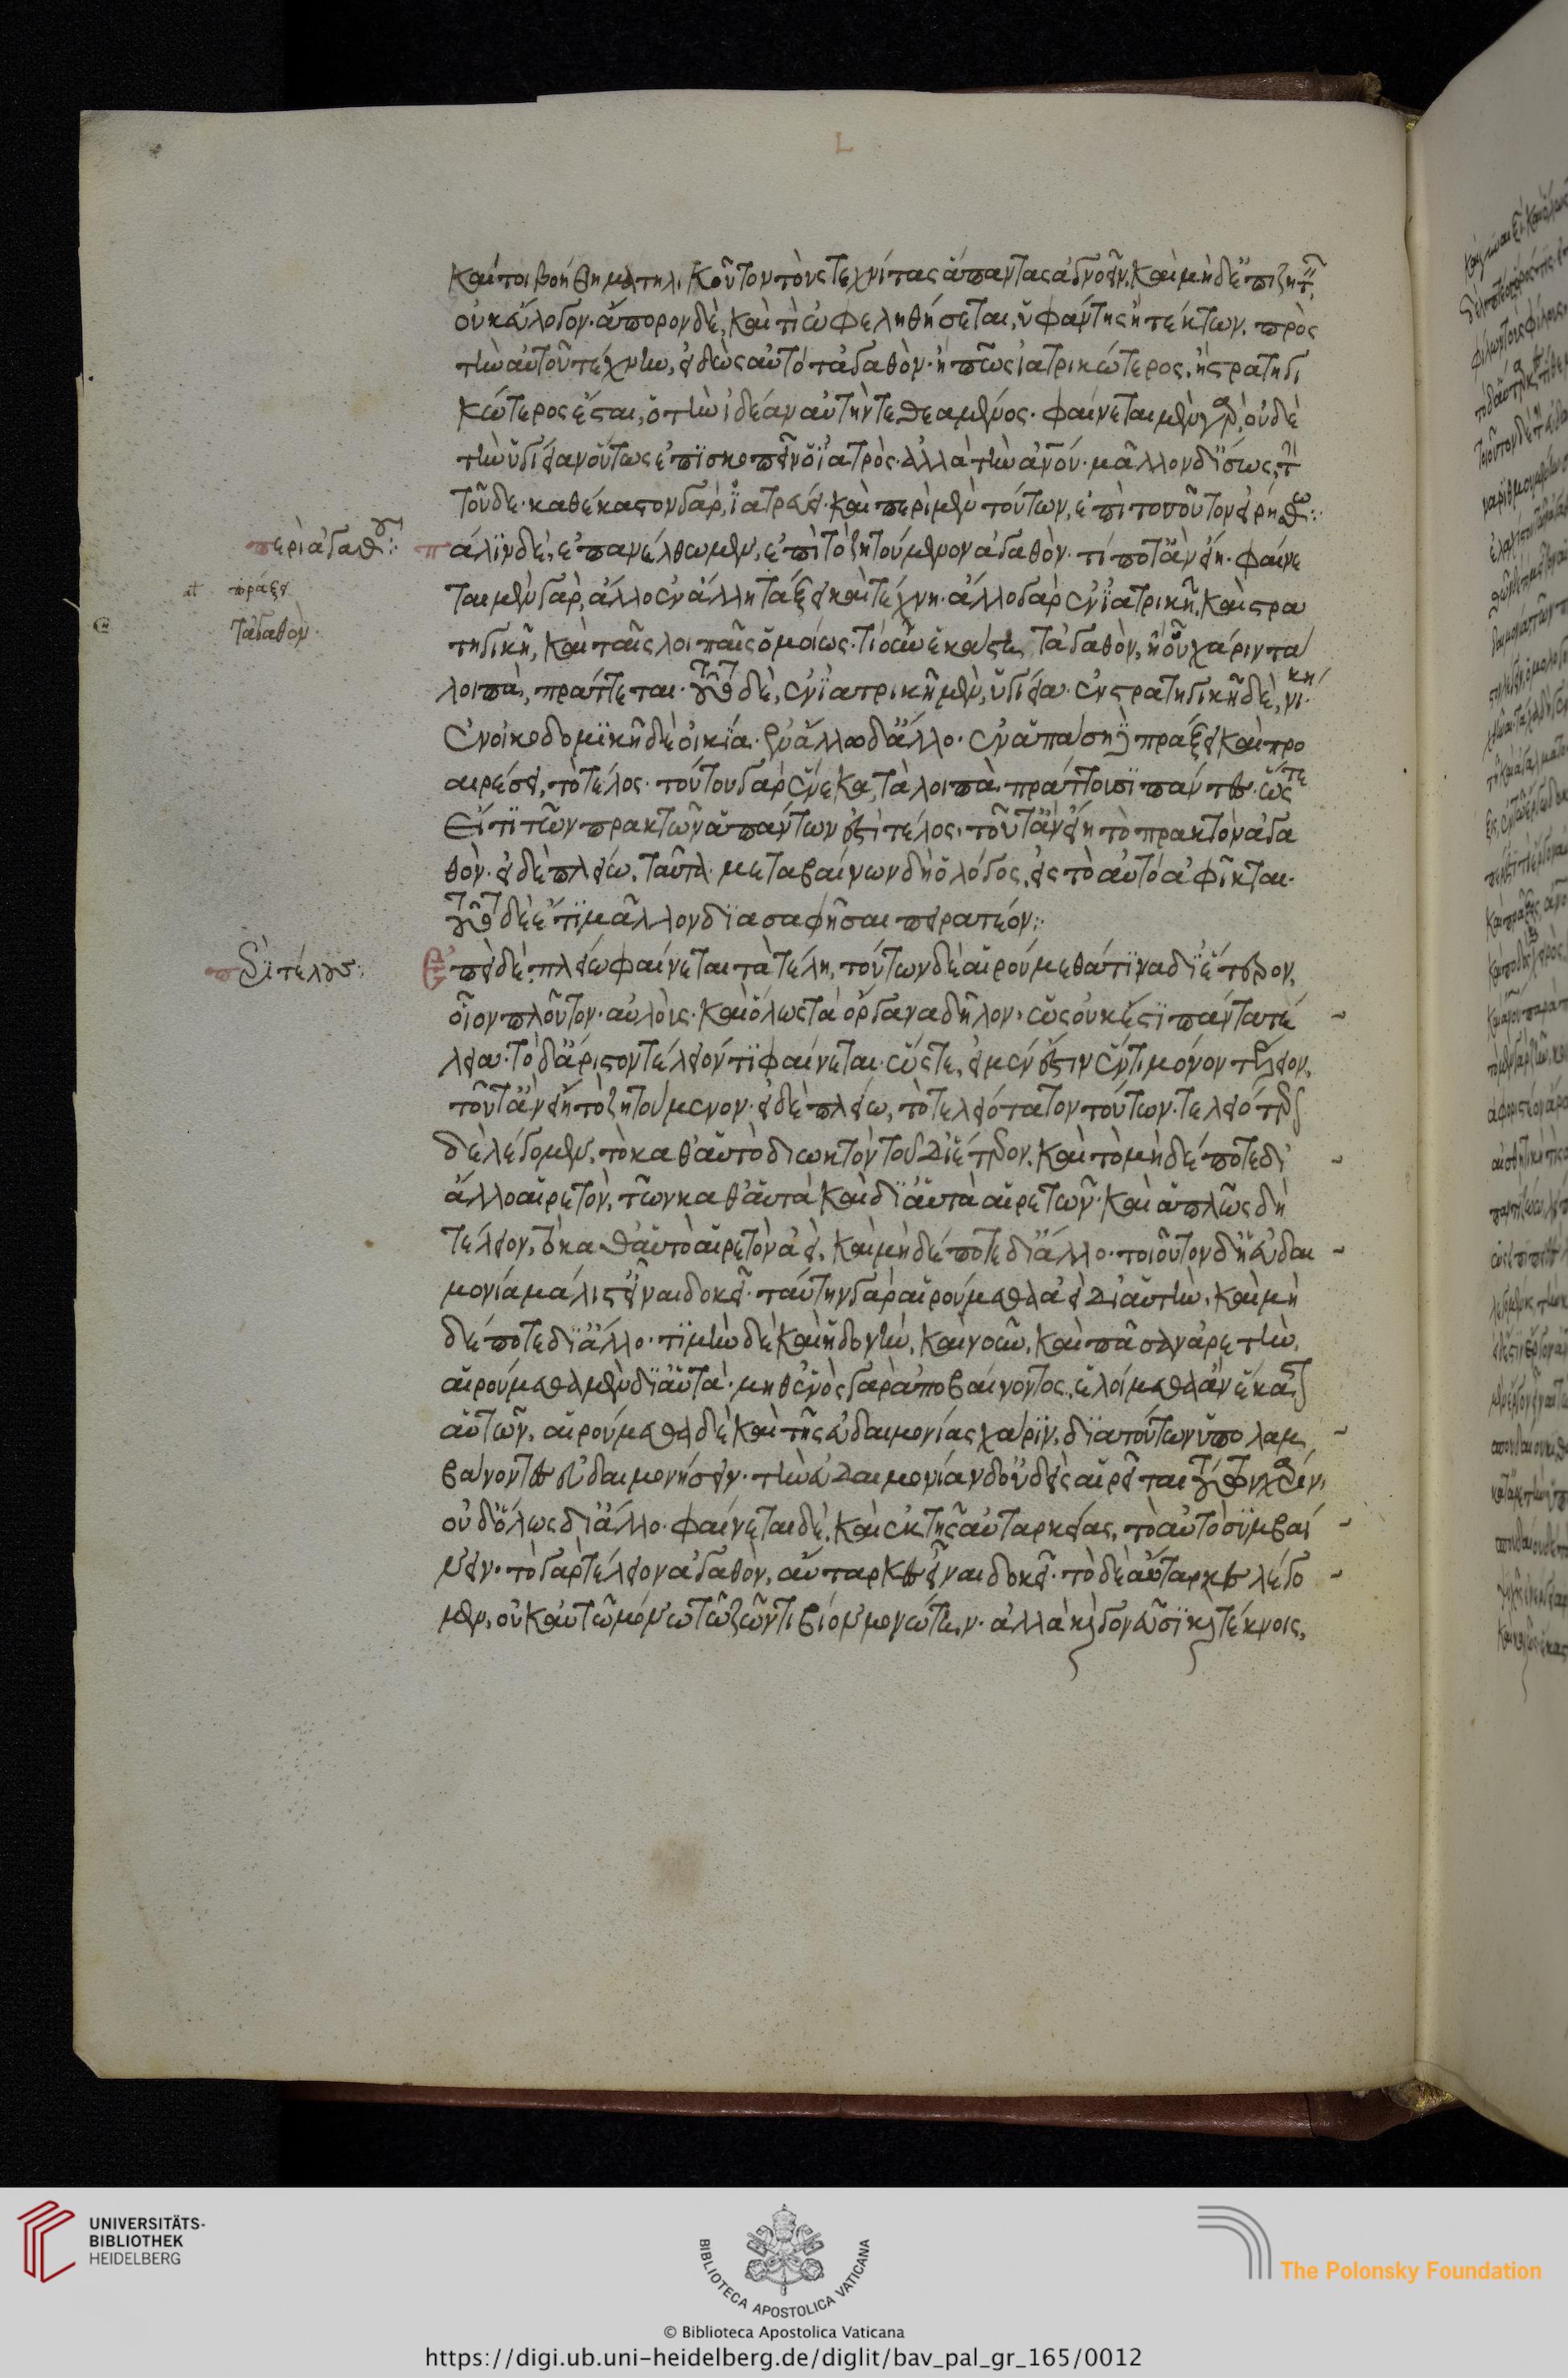 L
καίτοι βοήθημα τηλικοῦτον τοὺς τεχνίτας ἅπαντας ἀγνοεῖν, καὶ μὴδ' ἐπιζητεῖν,
οὐκ εὔλογον. ἄπορον δὲ, καὶ τί ὠφεληθήσεται, ὑφάντης ἢ τέκτων, πρὸς
τὴν αὑτοῦ τέχνην, εἰδὼς αὐτὸ τἀγαθὸν. ἢ πῶς ἰατρικώτερος, ἢ στρατηγι
κώτερος ἔσται, ὁ τὴν ἰδέαν αὐτὴν τεθεαμένος. φαίνεται μὲν γὰρ, οὐδὲ
τὴν ὑγίειαν οὕτως ἐπισκοπεῖν ὁ ἰατρὸς. ἀλλὰ τὴν ἀνου. μᾶλλον δ' ἴσως, τὴν
τοῦδε. καθέκαστον γὰρ, ἰατρεύει. καὶ περὶ μὲν τούτων, ἐπὶ τοσοῦτον εἰρήσθω:
περὶ ἀγαθοῦ:
πάλιν δὲ, ἐπανέλθωμεν, ἐπὶ τὸ ζητούμενον ἀγαθὸν. τί ποτ' ἂν εἴη. φαίνε
πράξει
ται μὲν γὰρ, ἄλλο ἐν ἄλλη τάξει καὶ τέχνη. ἄλλο γὰρ ἐν ἰατρικῆ, καὶ στρα
τἀγαθὸν.
τηγικῆ, καὶ ταῖς λοιπαῖς ὁμοίως. τί οὖν ἑκάστης τἀγαθὸν, ἢ οὗ χάριν τα
λοιπὰ, πράττεται. τοῦτο δὲ, ἐν ἰατρικῆ μὲν, ὑγίεια. ἐν στρατηγικῆ δὲ, νίκη.
ἐν οἰκοδομικῆ δὲ οἰκία. ἐν ἄλλω δ' ἄλλο. ἐν ἁπάση δὲ πράξει καὶ προ
αιρέσει, τὸ τέλος. τούτου γὰρ ἕνεκα, τὰ λοιπὰ πράττουσι πάντες. ὥστε
εἴ τι τῶν πρακτῶν ἁπάντων ἐστὶ τέλος, τοῦτ' ἂν εἴη τὸ πρακτὸν ἀγα
θὸν. εἰ δὲ πλείω, ταῦτα. μεταβαίνων δὴ ὁ λόγος, εἰς τὸ αὐτὸ ἀφῖκται.
τοῦτο δὲ ἔτι μᾶλλον διασαφῆσαι πειρατέον:
περὶ τέλους:
ἐπεὶ δὲ πλείω φαίνεται τὰ τέλη, τούτων δὲ αἱρούμεθά τινα δι' ἕτερον,
οἷον πλοῦτον. αὐλοὺς. καὶ ὅλως τὰ ὄργανα δῆλον, ὡς οὐκ ἔστι πάντα τέ
λεια. τὸ δ' ἄριστον τέλειόν τι φαίνεται. ὥστε, εἰ μὲν ἐστιν ἕν τι μόνον τέλειον,
τοῦτ' ἂν εἴη τὸ ζητούμενον. εἰ δὲ πλείω, τὸ τελειότατον τούτων. τελειότερον
δὲ λέγομεν, τὸ καθ' αὑτὸ διωκτὸν τοῦ δι' ἕτερον, καὶ τὸ μὴδέποτε δι'
ἄλλο αἱρετὸν, τῶν καθ' αὑτὰ καὶ δι' αὑτὰ αἱρετῶν. καὶ ἁπλῶς δὴ
τέλειον, τὸ καθ' αὑτὸ αἱρετὸν ἀεὶ, καὶ μὴδέποτε δι' ἄλλο. τοιοῦτον δ' ἡ εὐδαι
μονία μάλιστ' εἶναι δοκεῖ. ταύτην γὰρ αἱρούμεθα ἀεὶ δι' αὐτὴν, καὶ μὴ
δέποτε δι' ἄλλο. τιμὴν δὲ καὶ ἡδονὴν, καὶ νοῦν, καὶ πᾶσαν ἀρετὴν,
αἱρούμεθα μὲν δι' αὐτὰ. μηθενὸς γὰρ ἀποβαίνοντος, ἑλοίμεθα ἂν ἕκαστον
αὐτῶν, αἱρούμεθα δὲ καὶ τῆς εὐδαιμονίας χάριν, διὰ τούτων ὑπολαμ
βάνοντες εὐδαιμονήσειν. τὴν εὐδαιμονίαν δ' οὐδεὶς αἱρεῖται τούτων χάριν,
οὐδ' ὅλως δι' ἄλλο. φαίνεται δὲ, καὶ ἐκ τῆς αὐταρκείας, τὸ αὐτὸ συμβαί
νειν. τὸ γὰρ τέλειον ἀγαθὸν, αὔταρκες εἶναι δοκεῖ. τὸ δὲ αὔταρκες λέγο
μεν, οὐκ αὐτῶ μόνω τῶ ζῶντι βίον μονώτην. ἀλλὰ καὶ γονεῦσι καὶ τέκνοις,
UNIVERSITÄTS-
BIBLIOTHEK
HEIDELBERG
BIBLIOTECA APOSTOLICA VATICANA
The Polonsky Foundation
© Biblioteca Apostolica Vaticana
https://digi.ub.uni-heidelberg.de/diglit/bav_pal_gr_165/0012